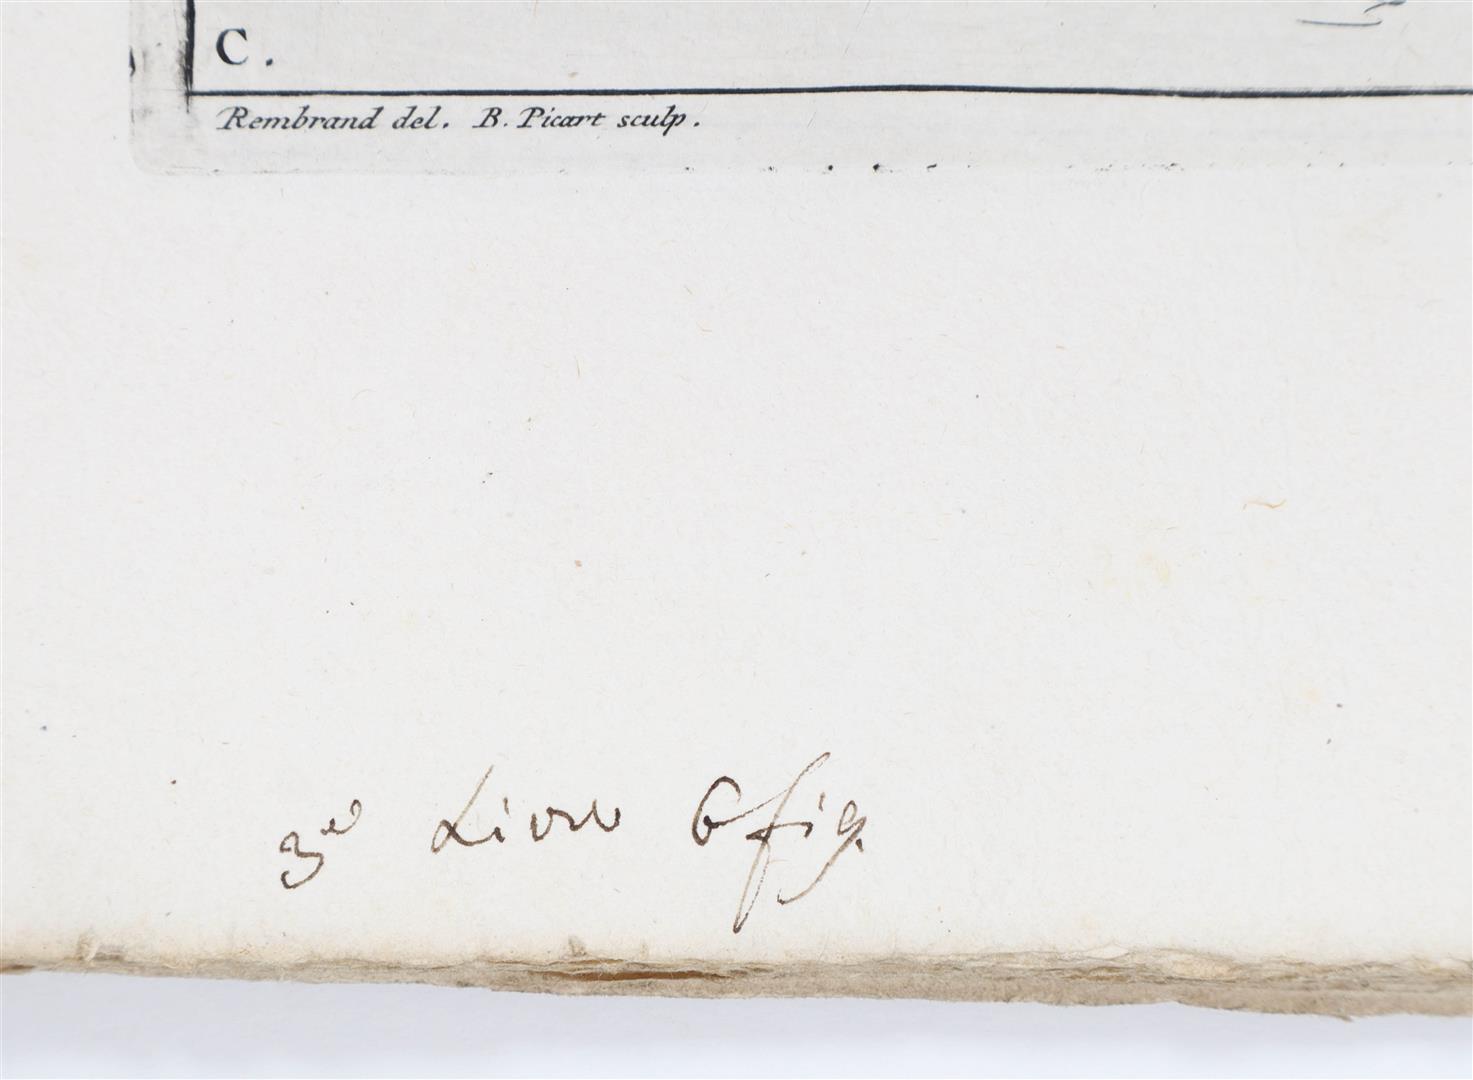 C.
Rembrand del. B. Picart sculp.
3e Livre 6 fig.